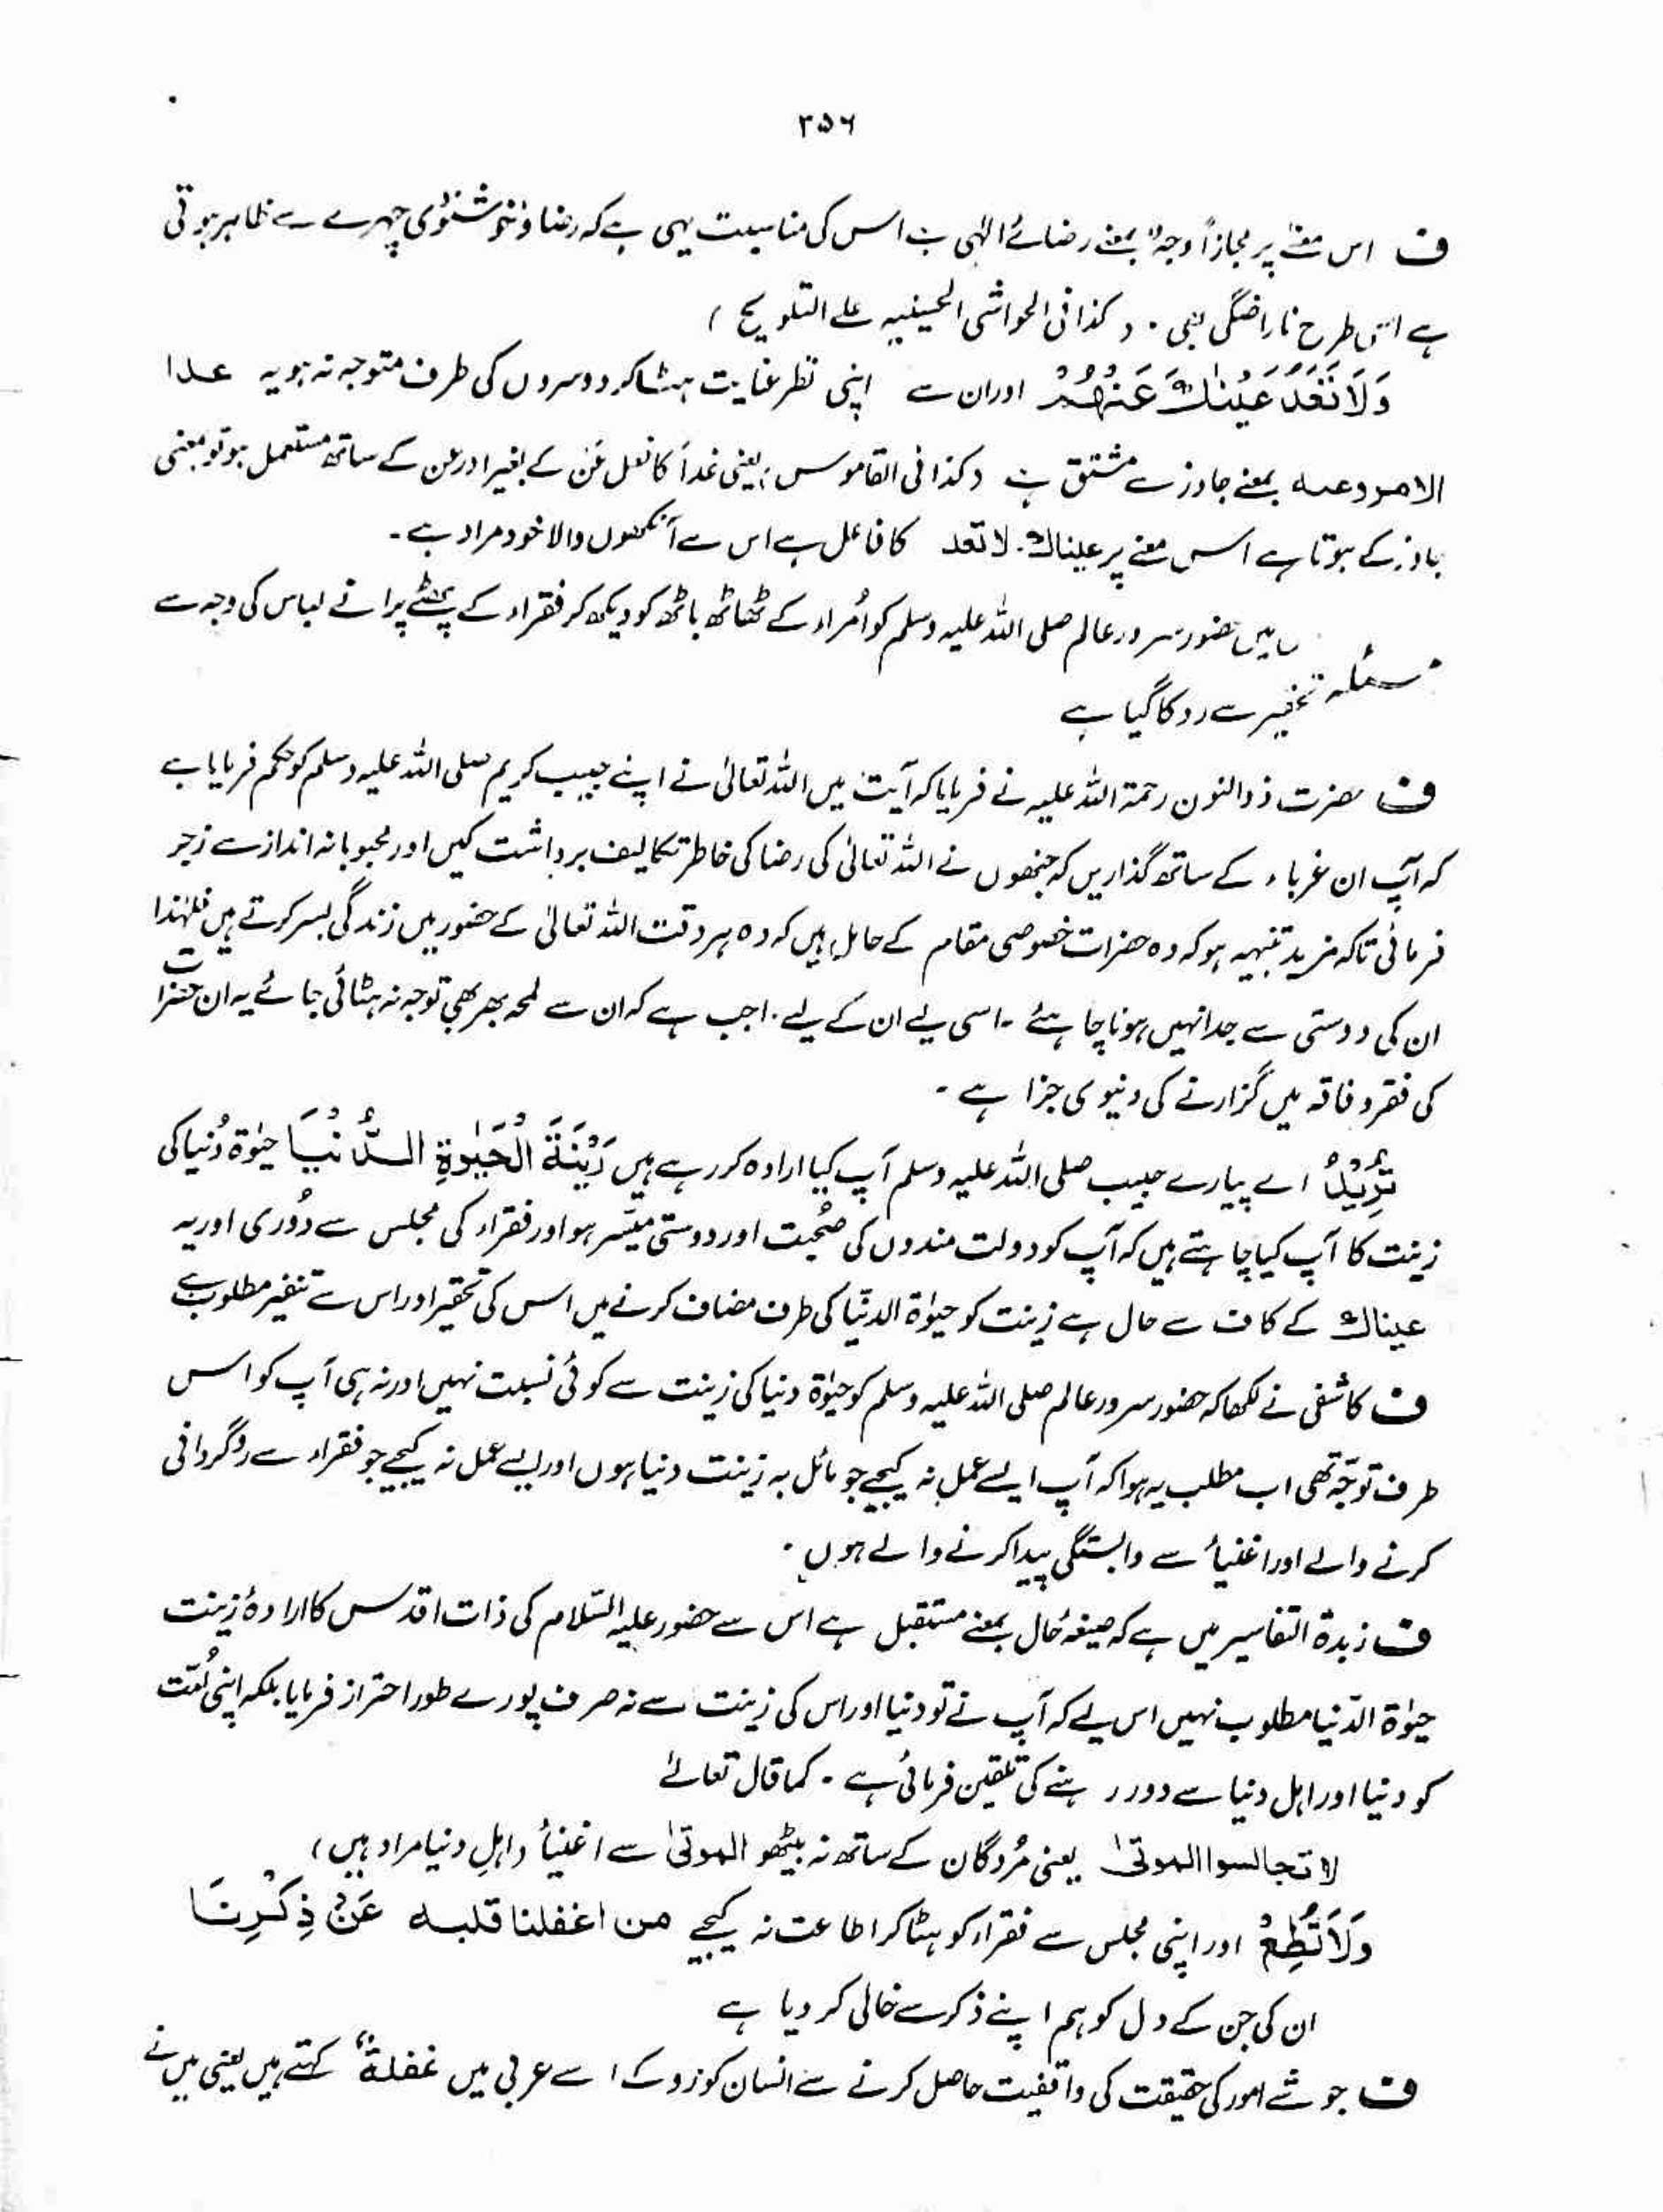 ۳۵۶
ف اس معنے پر مجازاً وجہ بمعنے رضائے الٰہی ہے اس کی مناسبت یہی ہے کہ رضا و خوشنودی چہرے سے ظاہر ہوتی
ہے اسی طرح ناراضگی بھی ۔ ( کذا فی الحواشی الحسینیہ علے التلویح )
وَلَا تَعْدُ عَيْنٰكَ عَنْهُمْ اور ان سے اپنی نظر عنایت ہٹا کر دوسروں کی طرف متوجہ نہ ہو یہ عدا
الامر وعنہ بمعنے جاوز سے مشتق ہے ( کذا فی القاموس ) یعنی عَدَا کا فعل عَن کے بغیر اور عن کے ساتھ مستعمل ہو تو بمعنی
جاوز کے ہوتا ہے اس معنے پر عیناك ۔ لا تعد کا فاعل ہے اس سے آنکھوں والا خود مراد ہے ۔
مسئلہ میں حضور سرور عالم صلی اللہ علیہ وسلم کو اُمراء کے ٹھاٹھ باٹھ کو دیکھ کر فقراء کے پھٹے پرانے لباس کی وجہ سے
تحقیر سے روکا گیا ہے
ف حضرت ذوالنون رحمۃ اللہ علیہ نے فرمایا کہ آیت میں اللہ تعالیٰ نے اپنے حبیب کریم صلی اللہ علیہ وسلم کو حکم فرمایا ہے
کہ آپ ان غرباء کے ساتھ گذاریں کہ جنھوں نے اللہ تعالیٰ کی رضا کی خاطر تکالیف برداشت کیں اور محبوبانہ انداز سے زجر
فرمائی تاکہ مزید تنبیہہ ہو کہ وہ حضرات خصوصی مقام کے حامل ہیں کہ وہ ہر وقت اللہ تعالیٰ کے حضور میں زندگی بسر کرتے ہیں فلہٰذا
ان کی دوستی سے جدا نہیں ہونا چاہئے ۔ اسی لیے ان کے لیے واجب ہے کہ ان سے لمحہ بھر بھی توجہ نہ ہٹائی جائے یہ ان حضرات
کی فقر و فاقہ میں گزارنے کی دنیوی جزا ہے ۔
تُرِيْدُ اے پیارے حبیب صلی اللہ علیہ وسلم آپ کیا ارادہ کر رہے ہیں زِيْنَةَ الْحَيٰوةِ الدُّنْيَا حیٰوۃ دُنیا کی
زینت کا آپ کیا چاہتے ہیں کہ آپ کو دولت مندوں کی صُحبت اور دوستی میسّر ہو اور فقراء کی مجلس سے دُوری اور یہ
عیناك کے کاف سے حال ہے زینت کو حیٰوۃ الدنیا کی طرف مضاف کرنے میں اس کی تحقیر اور اس سے تنفیر مطلوب ہے
ف کاشفی نے لکھا کہ حضور سرور عالم صلی اللہ علیہ وسلم کو حیٰوۃ دنیا کی زینت سے کوئی نسبت نہیں اور نہ ہی آپ کو اس
طرف توجّہ تھی اب مطلب یہ ہوا کہ آپ ایسے عمل نہ کیجیے جو مائل بہ زینت دنیا ہوں اور ایسے عمل نہ کیجیے جو فقراء سے روگردانی
کرنے والے اور اغنیأ سے وابستگی پیدا کرنے والے ہوں ۔
ف زبدۃ التفاسیر میں ہے کہ صیغۂ حال بمعنے مستقبل ہے اس سے حضور علیہ السّلام کی ذات اقدس کا ارادۂ زینت
حیٰوۃ الدّنیا مطلوب نہیں اس لیے کہ آپ نے تو دنیا اور اس کی زینت سے نہ صرف پورے طور احتراز فرمایا بلکہ اپنی اُمّت
کو دنیا اور اہل دنیا سے دور رہنے کی تلقین فرمائی ہے ۔ کما قال تعالےٰ
لا تجالسوا الموتیٰ یعنی مُردگان کے ساتھ نہ بیٹھو الموتیٰ سے اغنیأ و اہلِ دنیا مراد ہیں )
وَلَا تُطِعْ اور اپنی مجلس سے فقراء کو ہٹا کر اطاعت نہ کیجیے من اغفلنا قلبه عَنْ ذِكْرِنَا
ان کی جن کے دل کو ہم اپنے ذکر سے خالی کر دیا ہے
ف جو شے امور کی حقیقت کی واقفیت حاصل کرنے سے انسان کو روکے اسے عربی میں غفلۃ کہتے ہیں یعنی میں نے